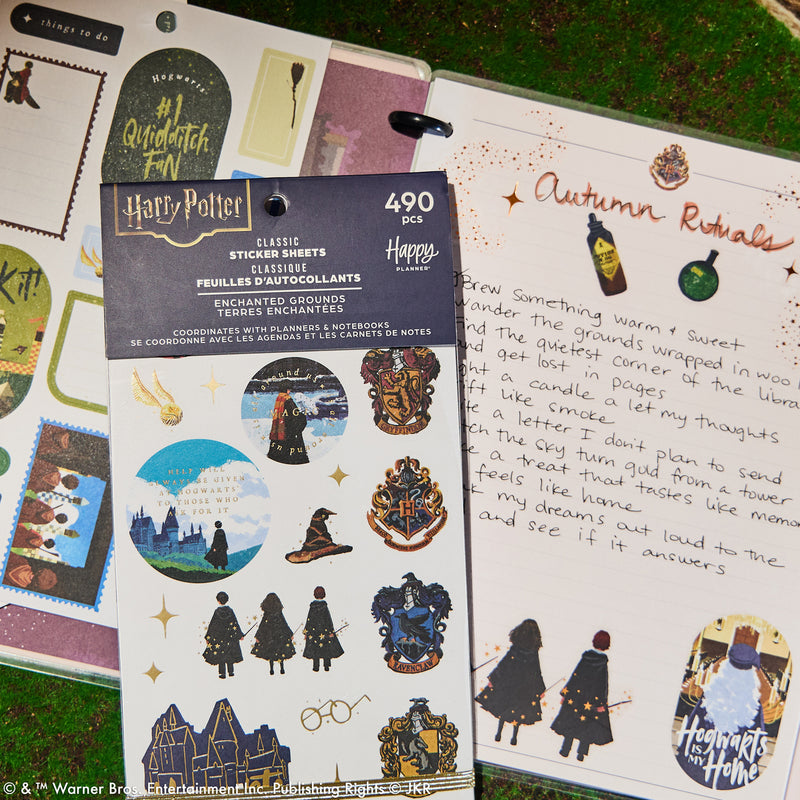 things to do
Hogwarts
#1
Quidditch
Fan
Kit!
Harry Potter
490
pcs
CLASSIC
STICKER SHEETS
CLASSIQUE
FEUILLES D'AUTOCOLLANTS
Happy
PLANNER®
ENCHANTED GROUNDS
TERRES ENCHANTÉES
COORDINATES WITH PLANNERS & NOTEBOOKS
SE COORDONNE AVEC LES AGENDAS ET LES CARNETS DE NOTES
around us
MAGIC
GRYFFINDOR
HELP WILL
ALWAYS BE GIVEN
AT HOGWARTS
TO THOSE WHO
ASK FOR IT
H
RAVENCLAW
Autumn Rituals
brew something warm & sweet
wander the grounds wrapped in
the quietest corner of the
get lost in pages
a candle & let my thoughts
like smoke
a letter I don't plan to send
the sky turn gold from a tower
a treat that tastes like
feels like home
my dreams out loud to the
and see if it answers
Hogwarts
IS MY
Home
© & ™ Warner Bros. Entertainment Inc. Publishing Rights © JKR